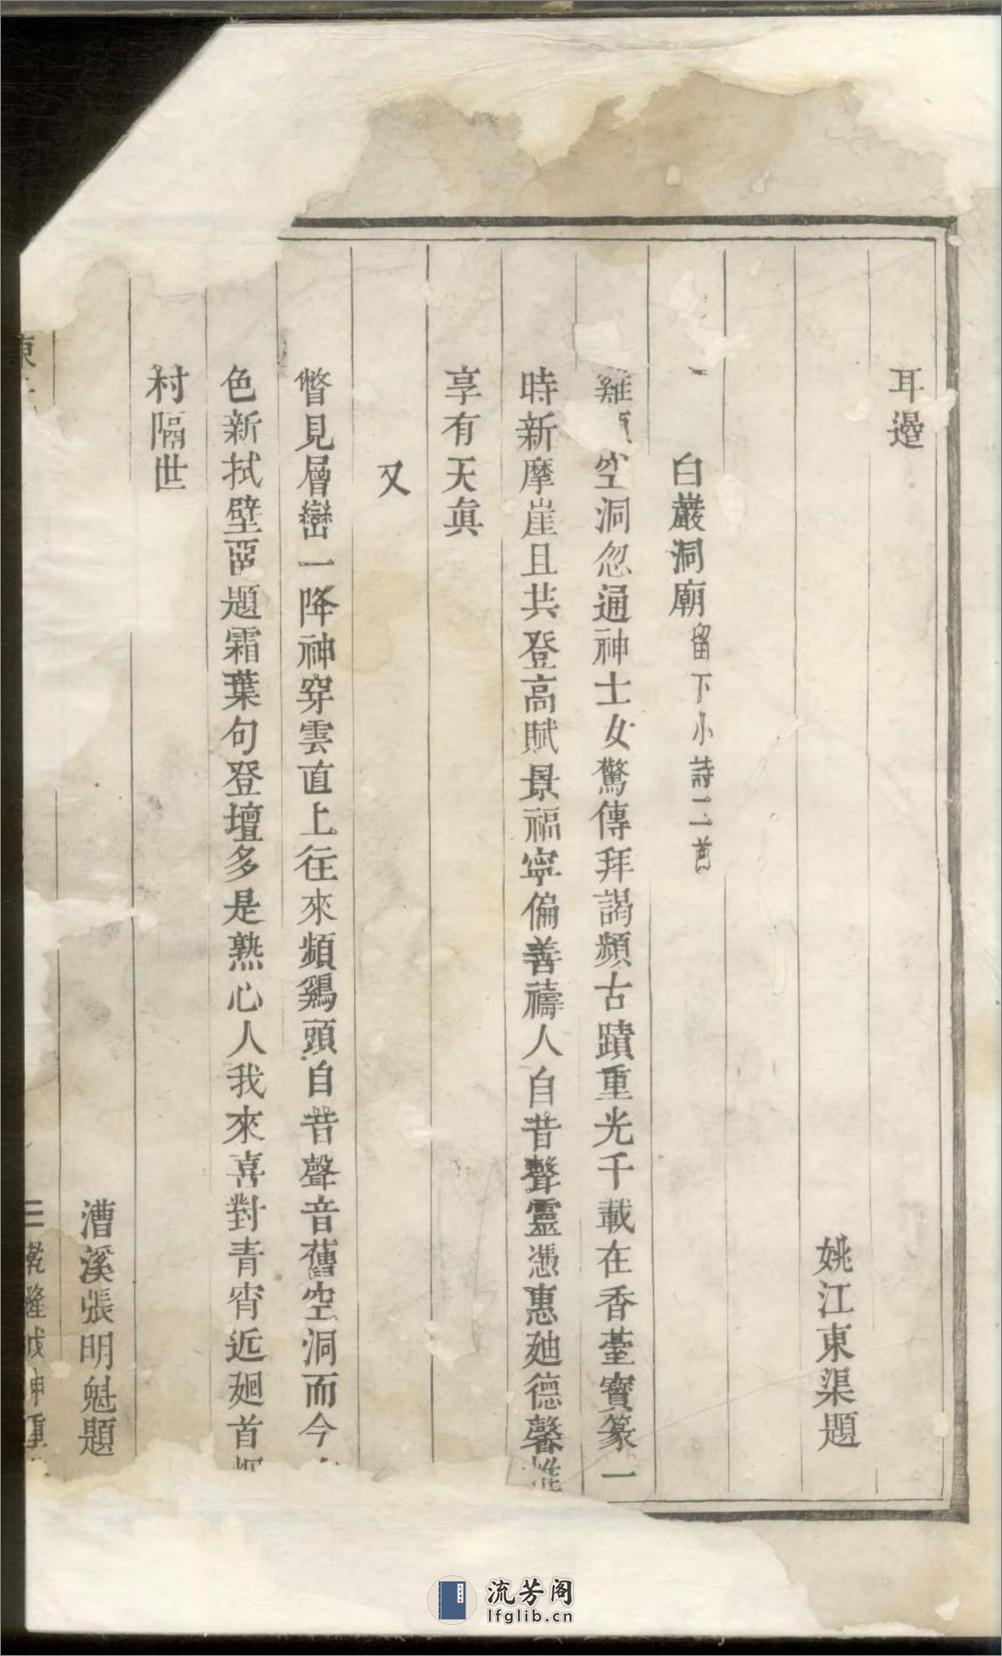 耳邊
姚江東渠題
白巖洞廟留下小詩二首
雞 空洞忽通神士女驚傳拜謁頻古蹟重光千載在香臺寶篆一
時新摩崖且共登高賦景福寧偏善禱人自昔聲靈憑惠廸德馨惟
享有天眞
又
瞥見層巒一降神穿雲直上往來頻鷄頭自昔聲音舊空洞而今
色新拭壁西題霜葉句登壇多是熟心人我來喜對青宵近廻首
村隔世
漕溪張明魁題
東
三乾隆戊申重
流芳阁
lfglib.cn